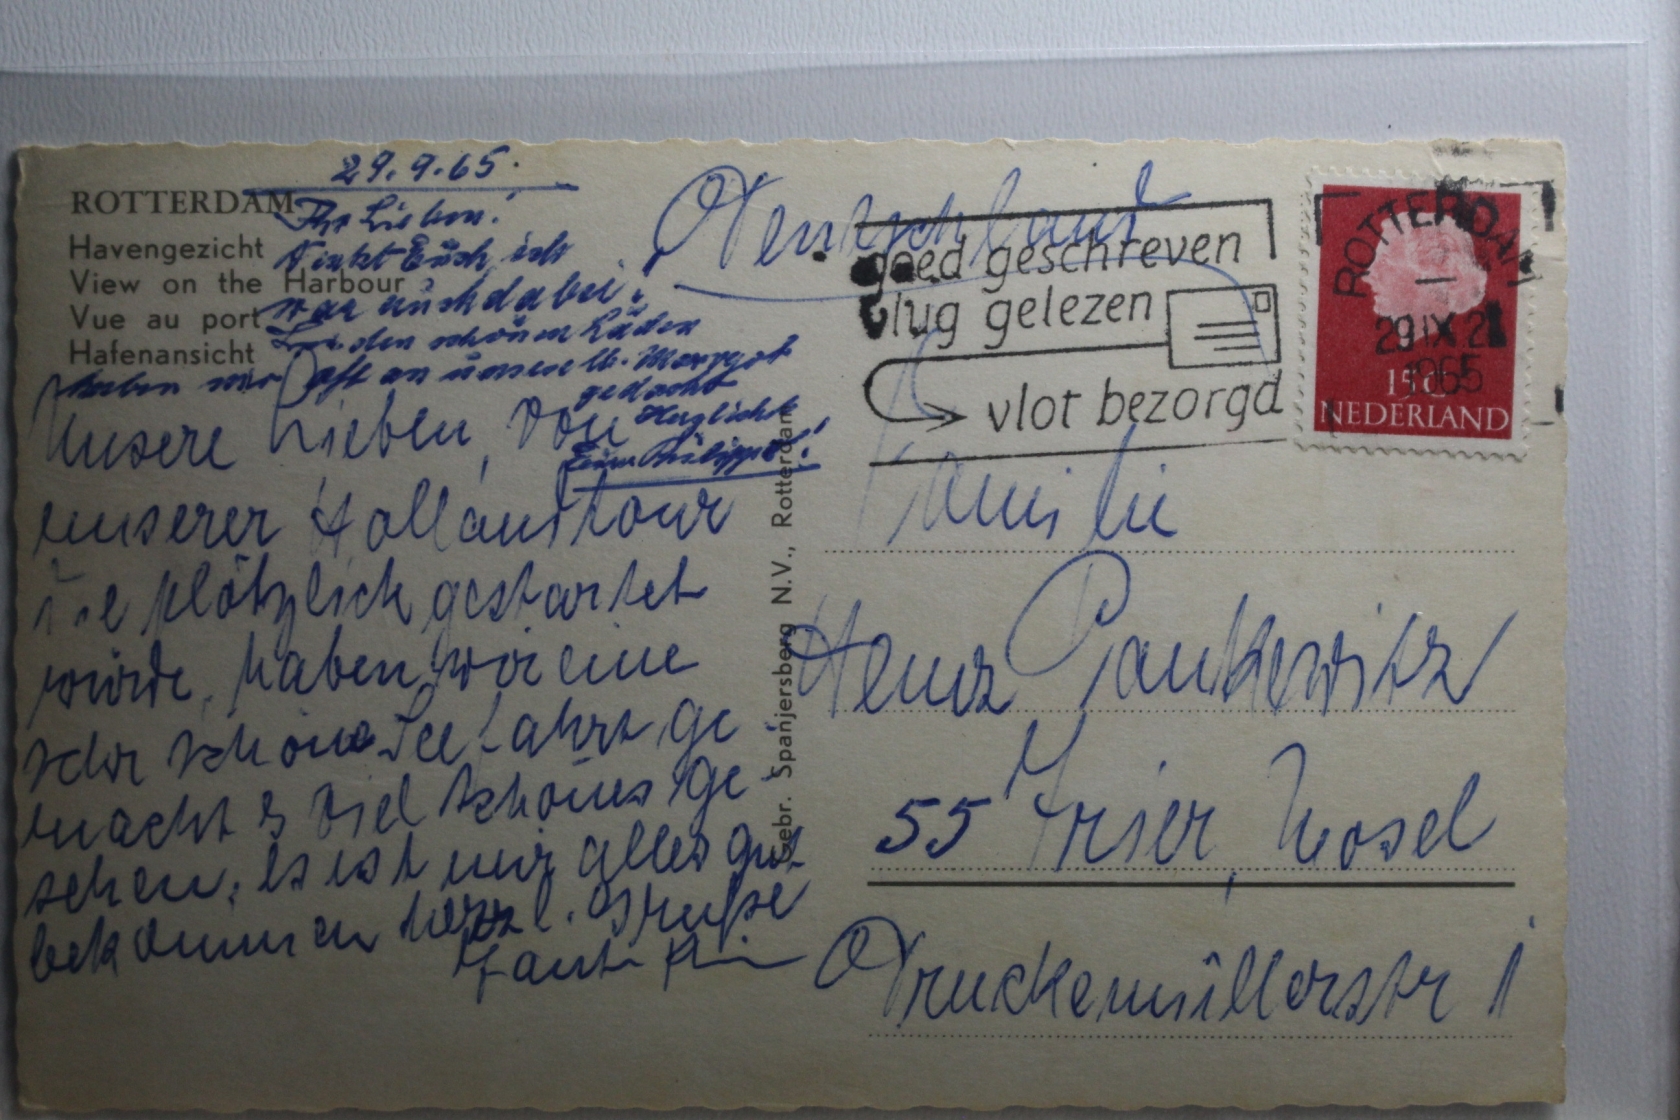 29.9.65.
ROTTERDAM
Havengezicht
View on the Harbour
Vue au port
Hafenansicht
Ihr Lieben!
Euch, ich
war auch dabei.
den schönen Läden
haben wir oft an unsere lb. Margot
gedacht
Herzlichst
Eure
Unsere Lieben, Von
unserer Hollandtour
die plötzlich gestartet
wurde, haben wir eine
sehr schöne Seefahrt ge
macht & viel schönes ge
sehen. Es ist mir alles gut
bekommen herzl. Grüße
Tante
Gebr. Spanjersberg N.V., Rotterdam
Deutschland
goed geschreven
vlug gelezen
vlot bezorgd
ROTTERDAM
29 IX 21
1965
15 c
NEDERLAND
Familie
Heinz Pankewitz
55 Trier, Mosel
Druckenmüllerstr 1